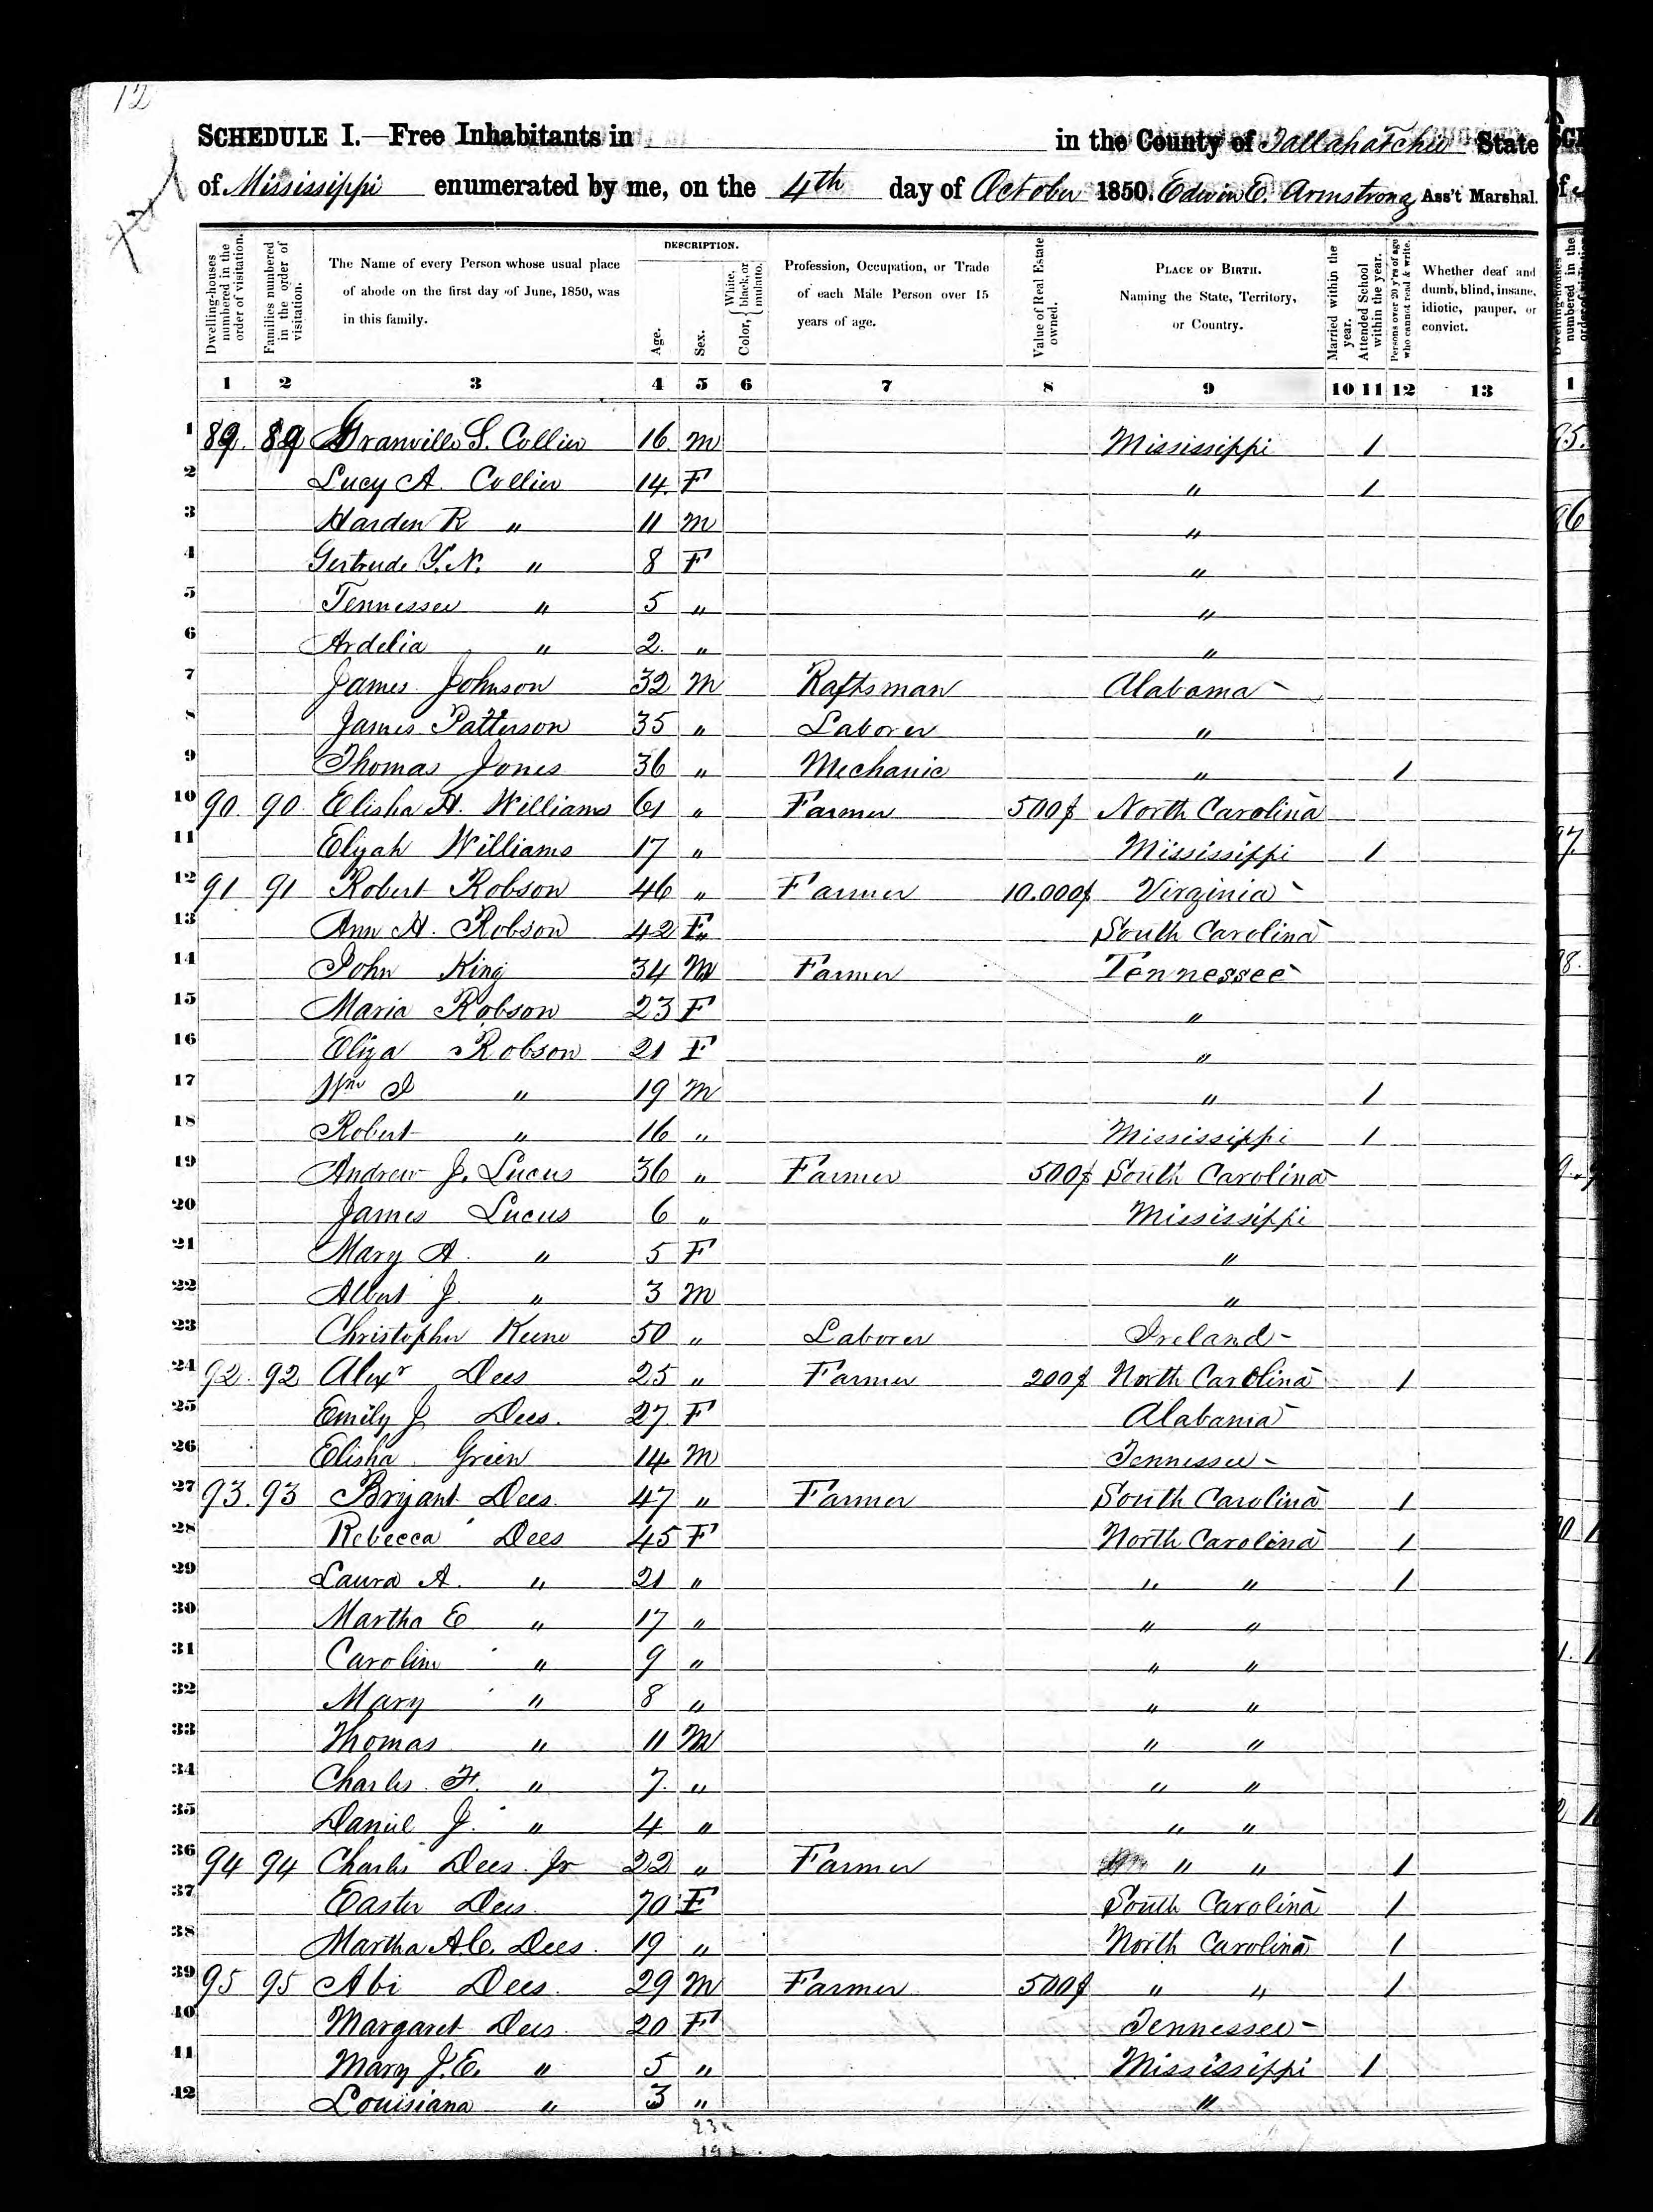 12
SCHEDULE I.—Free Inhabitants in in the County of Tallahatchie State
of Mississippi enumerated by me, on the 4th day of October 1850. Edwin E. Armstrong Ass't Marshal.
Dwelling-houses numbered in the order of visitation.
Families numbered in the order of visitation.
The Name of every Person whose usual place of abode on the first day of June, 1850, was in this family.
DESCRIPTION.
Age.
Sex.
Color, { White, black, or mulatto.
Profession, Occupation, or Trade of each Male Person over 15 years of age.
Value of Real Estate owned.
PLACE OF BIRTH. Naming the State, Territory, or Country.
Married within the year.
Attended School within the year.
Persons over 20 y'rs of age who cannot read & write.
Whether deaf and dumb, blind, insane, idiotic, pauper, or convict.
1 2 3 4 5 6 7 8 9 10 11 12 13
1 89. 89 Granville S. Collier 16 M Mississippi 1
2 Lucy A. Collier 14 F " 1
3 Harden R " 11 M "
4 Gertrude Y. N. " 8 F "
5 Tennessee " 5 " "
6 Ardelia " 2 " "
7 James Johnson 32 M Raftsman Alabama
8 James Patterson 35 " Laborer "
9 Thomas Jones 36 " Mechanic " 1
10 90. 90 Elisha H. Williams 61 " Farmer 500$ North Carolina
11 Elijah Williams 17 " Mississippi 1
12 91 91 Robert Robson 46 " Farmer 10.000$ Virginia
13 Ann H. Robson 42 F" South Carolina
14 John King 34 M Farmer Tennessee
15 Maria Robson 23 F "
16 Eliza Robson 21 F "
17 Wm I " 19 M " 1
18 Robert " 16 " Mississippi 1
19 Andrew J. Lucus 36 " Farmer 500$ South Carolina
20 James Lucus 6 " Mississippi
21 Mary A. " 5 F "
22 Albert J. " 3 M "
23 Christopher Keene 50 " Laborer Ireland
24 92. 92 Alexr Dees 25 " Farmer 200$ North Carolina 1
25 Emily J Dees. 27 F Alabama
26 Elisha Green 14 M Tennessee
27 93. 93 Bryant Dees 47 " Farmer South Carolina 1
28 Rebecca Dees 45 F North Carolina 1
29 Laura A. " 21 " " " 1
30 Martha E " 17 " " "
31 Caroline " 9 " " "
32 Mary " 8 " " "
33 Thomas " 11 M " "
34 Charles F. " 7 " " "
35 Daniel J. " 4 " " "
36 94 94 Charles Dees Jr 22 " Farmer " " 1
37 Easter Dees 70 F South Carolina 1
38 Martha A. C. Dees. 19 " North Carolina 1
39 95 95 Abi Dees. 29 M Farmer 500$ " " 1
40 Margaret Dees 20 F Tennessee
41 Mary J. E. " 5 " Mississippi 1
42 Louisiana " 3 " "